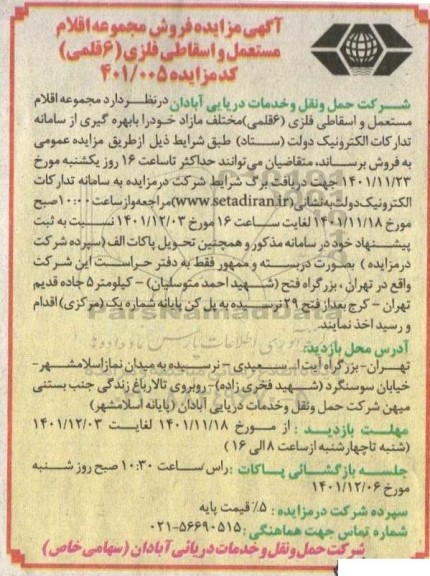 آگهی مزایده فروش مجموعه اقلام
مستعمل و اسقاطی فلزی (۶قلمی)
کدمزایده ۴۰۱/۰۰۵
شرکت حمل ونقل وخدمات دریایی آبادان درنظردارد مجموعه اقلام
مستعمل و اسقاطی فلزی (۶قلمی)مختلف مازاد خودرا بابهره گیری از سامانه
تدارکات الکترونیک دولت (ستاد) طبق شرایط ذیل ازطریق مزایده عمومی
به فروش برساند، متقاضیان می‌توانند حداکثر تاساعت ۱۶ روز یکشنبه مورخ
۱۴۰۱/۱۱/۲۳ جهت دریافت برگ شرایط شرکت درمزایده به سامانه تدارکات
الکترونیک‌دولت‌به‌نشانی(www.setadiran.ir)مراجعه‌وازساعت ۱۰:۰۰صبح
مورخ ۱۴۰۱/۱۱/۱۸ لغایت ساعت ۱۶ مورخ ۱۴۰۱/۱۲/۰۳ نسبت به ثبت
پیشنهاد خود در سامانه مذکور و همچنین تحویل پاکات الف (سپرده شرکت
درمزایده ) بصورت دربسته و ممهور فقط به دفتر حراست این شرکت
واقع در تهران ، بزرگراه فتح (شهید احمد متوسلیان) – کیلومتر ۵ جاده قدیم
تهران – کرج بعداز فتح ۲۹ نرسیده به پل کن پایانه شماره یک (مرکزی) اقدام
و رسید اخذ نمایند.
آدرس محل بازدید:
تهران– بزرگراه آیت ا... سعیدی – نرسیده به میدان نمازاسلامشهر–
خیابان سوسنگرد (شهید فخری زاده)– روبروی تالارباغ زندگی جنب بستنی
میهن شرکت حمل ونقل وخدمات دریایی آبادان (پایانه اسلامشهر)
مهلت بازدید : از مورخ ۱۴۰۱/۱۱/۱۸ لغایت ۱۴۰۱/۱۲/۰۳
(شنبه تاچهارشنبه ازساعت ۸ الی ۱۶ )
جلسه بازگشائی پاکات :راس ساعت ۱۰:۳۰ صبح روز شنبه
مورخ ۱۴۰۱/۱۲/۰۶
سپرده شرکت درمزایده : ۵٪ قیمت پایه
شماره تماس جهت هماهنگی : ۰۲۱-۵۶۶۹۰۵۱۵
شرکت حمل ونقل و خدمات دریائی آبادان (سهامی خاص)
ParsNamadData